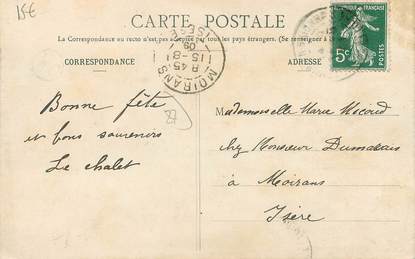 15€
CARTE POSTALE
La Correspondance au recto n'est pas acceptée par tous les pays étrangers. (Se renseigner à
CORRESPONDANCE
ADRESSE
RÉPUBLIQUE FRANÇAISE
5c
POSTES
MOIRANS
ISÈRE
8 45
15-8
09
Bonne fête
et bons souvenirs
Le chalet
Mademoiselle Marie
chez Monsieur
à Moirans
Isère